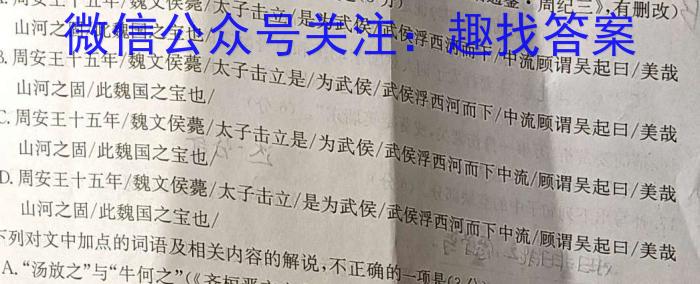 周安王十五年/魏文侯薨/太子击立/是为武侯/武侯浮西河而下/中流顾谓吴起曰/美哉
山河之固/此魏国之宝也/
微信公众号关注：趣找答案
B.周安王十五年/魏文侯薨/太子击立是/为武侯/武侯浮西河而下/中流顾谓吴起曰/美哉
山河之固/此魏国之宝也/
C.周安王十五年/魏文侯薨/太子击立是/为武侯/武侯浮西河而下中流/顾谓吴起曰/美哉
山河之固/此魏国之宝也/
D.周安王十五年/魏文侯薨/太子击立/是为武侯/武侯浮西河而下中流/顾谓吴起曰/美哉
山河之固/此魏国之宝也/
下列对文中加点的词语及相关内容的解说,不正确的一项是(3分)
A.“汤放之”与“牛何之”(《齐桓晋文